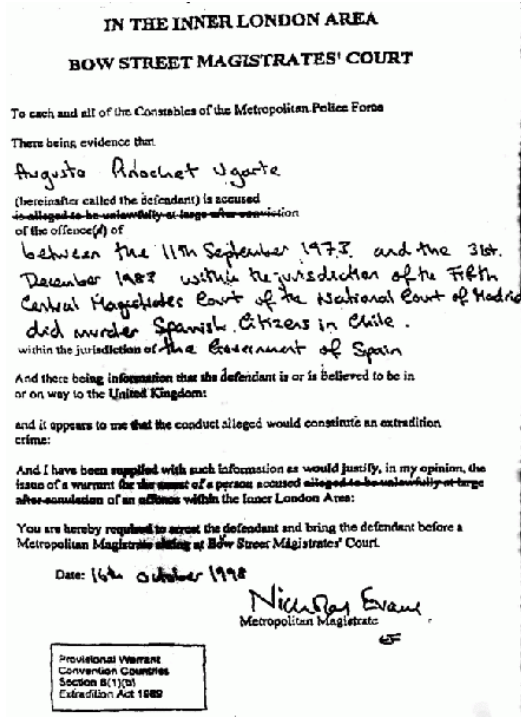 IN THE INNER LONDON AREA
BOW STREET MAGISTRATES' COURT
To each and all of the Constables of the Metropolitan Police Force
There being evidence that
Augusto Pinochet Ugarte
(hereinafter called the defendant) is accused
is alleged to be unlawfully at large after conviction
of the offence(s) of
between the 11th September 1973 and the 31st.
December 1983 within the jurisdiction of the Fifth
Central Magistrates Court of the National Court of Madrid
did murder Spanish Citizens in Chile.
within the jurisdiction of the Government of Spain
And there being information that the defendant is or is believed to be in
or on way to the United Kingdom:
and it appears to me that the conduct alleged would constitute an extradition
crime:
And I have been supplied with such information as would justify, in my opinion, the
issue of a warrant for the arrest of a person accused alleged to be unlawfully at large
after conviction of an offence within the Inner London Area:
You are hereby required to arrest the defendant and bring the defendant before a
Metropolitan Magistrate sitting at Bow Street Magistrates' Court.
Date: 16th October 1998
Nicholas Evans
Metropolitan Magistrate
Provisional Warrant
Convention Countries
Section 8(1)(b)
Extradition Act 1989